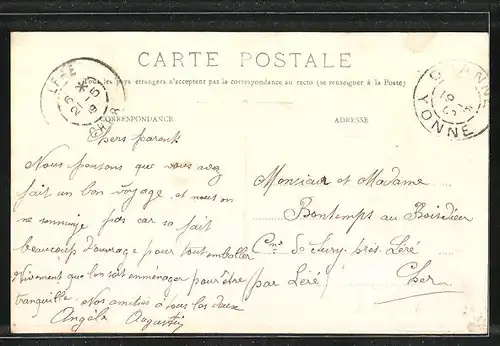 CARTE POSTALE
Tous les pays étrangers n'acceptent pas la correspondance au recto (se renseigner à la Poste)
LÉRÉ
CHER
YONNE
CORRESPONDANCE
ADRESSE
Chers parents
Nous pensons que vous avez
fait un bon voyage, et nous on
ne pas car sa fait
beaucoup d'ouvrage pour tout emballer
Vivement que l'on soit enménager pour être
tranquille. Nos amitiés à tous les deux
Angèle Augustin
Monsieur et Madame
Bontemps au Boisdieu
Cne de Sury près Léré
par Léré
Cher